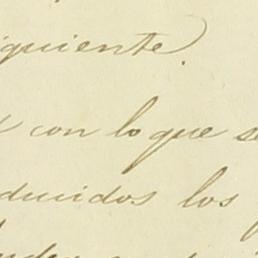 iguiente.
con lo que se
ducidos los